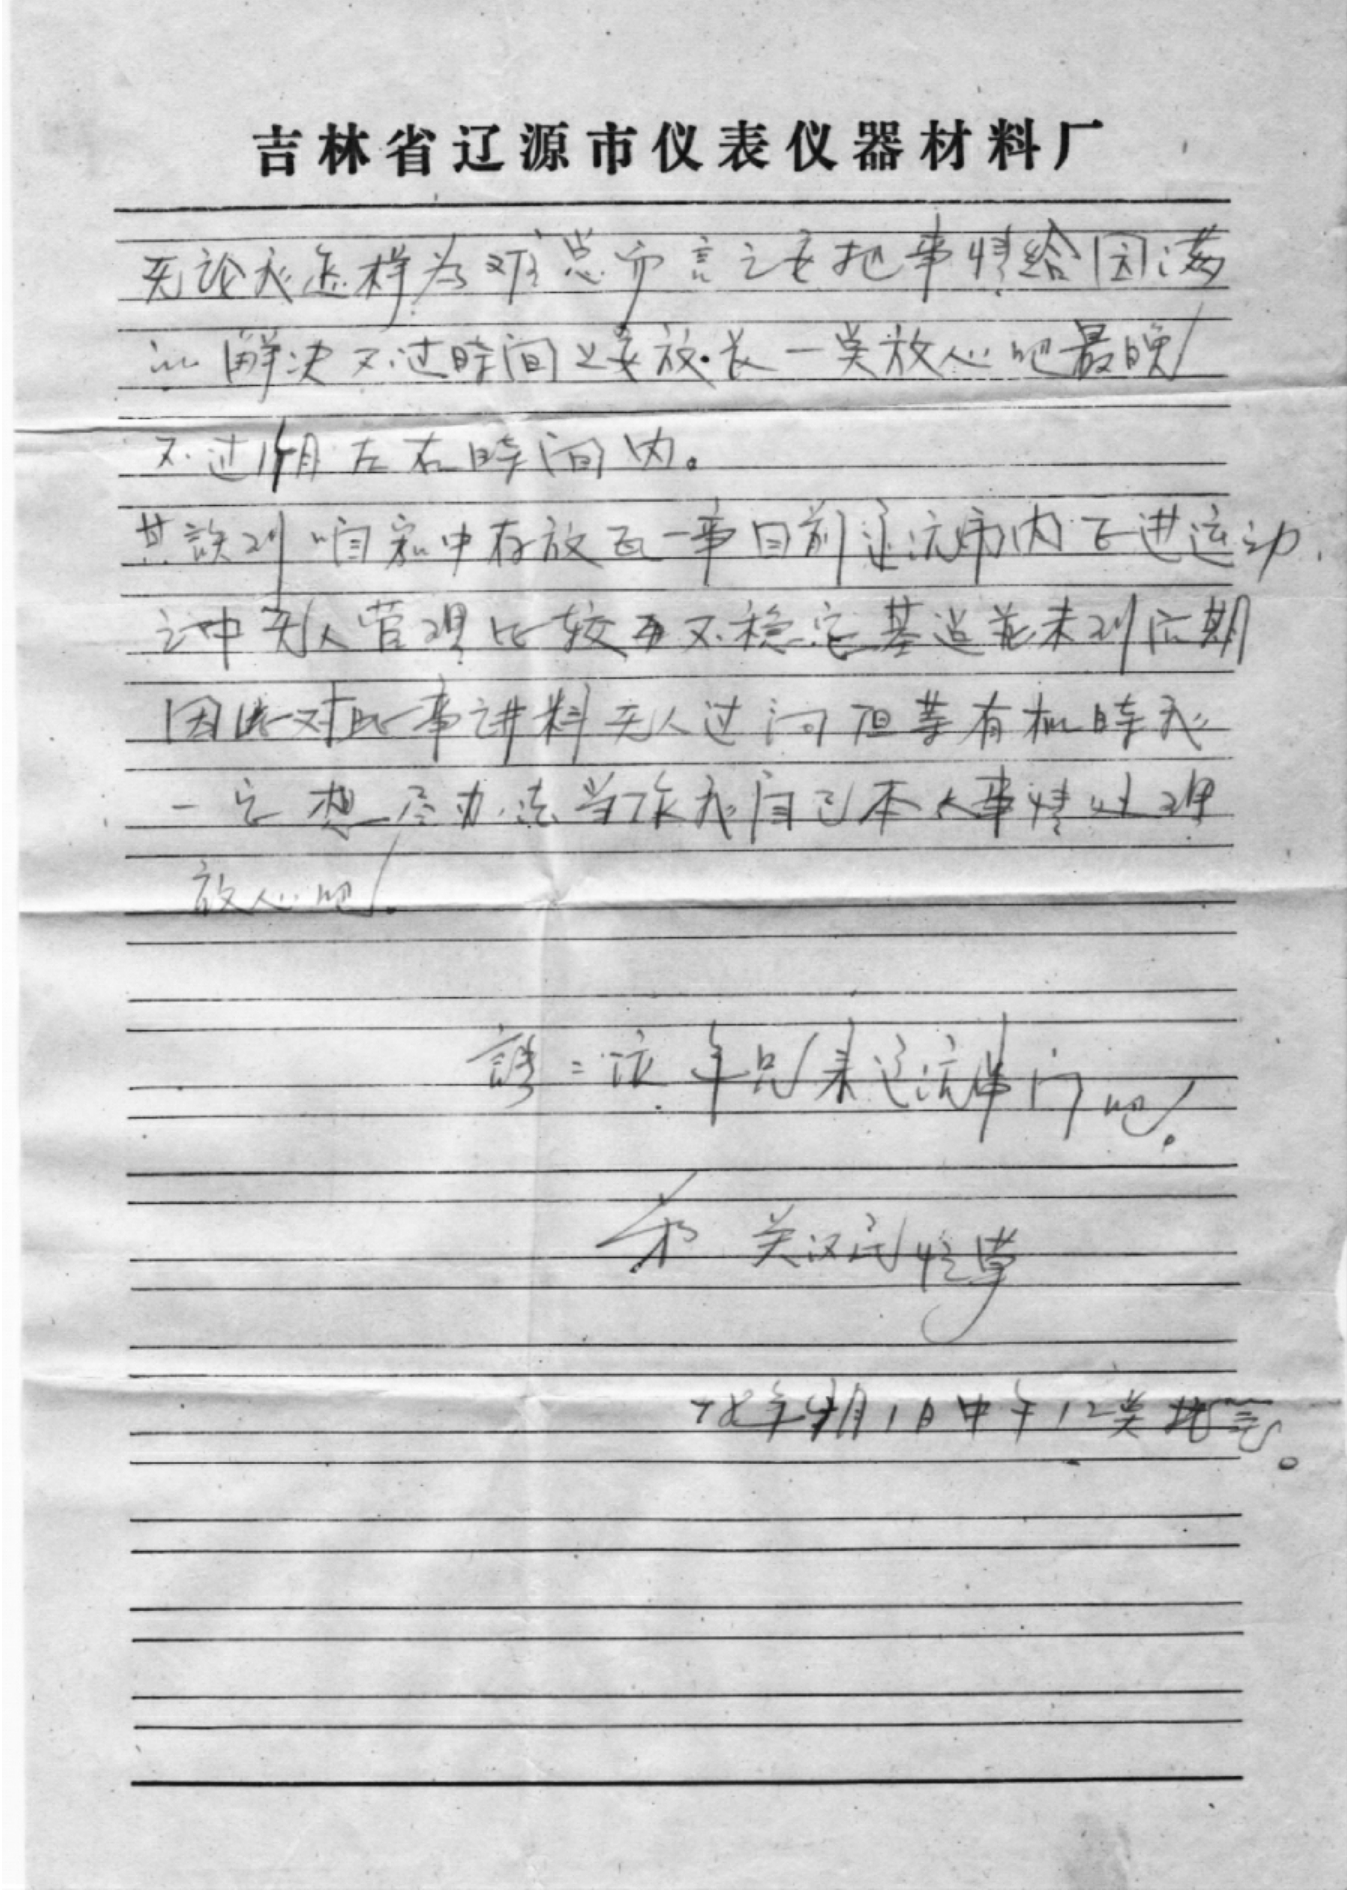 吉林省辽源市仪表仪器材料厂
无论我怎样为难总而言之要把事情给因满
解决不过時间要放长一点放心吧最晚
不过1个月左右時间内。
其谈到咱家中存放 一事目前辽沅市内正进运动
之中无人管理比较 不稳定基 未到 期
因此对此事 料无人过问但等有机時我
一定想尽办法当作我自己本人事情处理
放心吧!
請二位年兄来辽沅串门吧!
弟 关汉民 草
78年4月1日中午12点